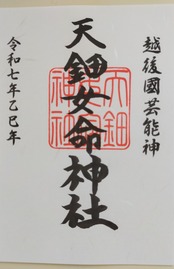 越後國芸能神
天鈿女命神社
令和七年乙巳年